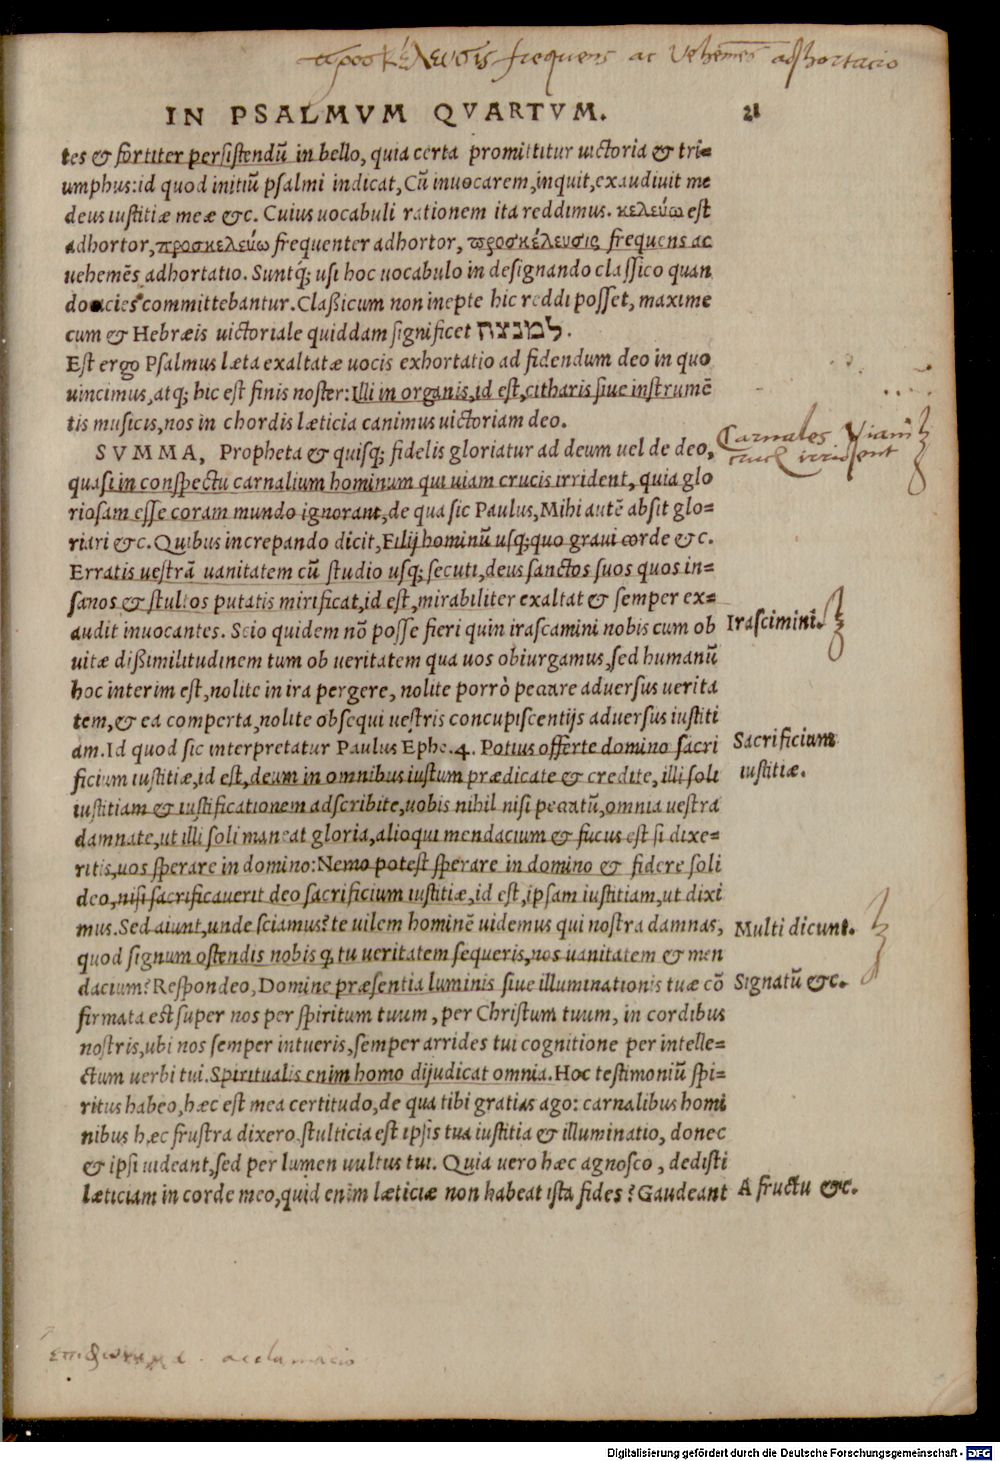 προσκέλευσις frequens ac vehemēs adhortacio
IN PSALMVM QVARTVM. 21
tes & fortiter persistendū in bello, quia certa promittitur uictoria & tri=
umphus: id quod initiū psalmi indicat, Cū inuocarem, inquit, exaudiuit me
deus iustitiæ meæ &c. Cuius uocabuli rationem ita reddimus. κελεύω est
adhortor, προσκελεύω frequenter adhortor, προσκέλευσις frequens ac
uehemēs adhortatio. Suntq́; usi hoc uocabulo in designando classico quan
do acies committebantur. Claßicum non inepte hic reddi posset, maxime
cum & Hebræis uictoriale quiddam significet למנצח.
Est ergo Psalmus læta exaltatæ uocis exhortatio ad fidendum deo in quo
uincimus, atq; hic est finis noster: Illi in organis, id est, citharis siue instrumē
tis musicis, nos in chordis læticia canimus uictoriam deo.
SVMMA, Propheta & quisq; fidelis gloriatur ad deum uel de deo,
Carnales viam
crucis irrident
quasi in conspectu carnalium hominum qui uiam crucis irrident, quia glo
riosam esse coram mundo ignorant, de qua sic Paulus, Mihi autē absit glo=
riari &c. Quibus increpando dicit, Filij hominū usq; quo graui corde &c.
Erratis uestrā uanitatem cū studio usq; secuti, deus sanctos suos quos in=
sanos & stultos putatis mirificat, id est, mirabiliter exaltat & semper ex=
audit inuocantes. Scio quidem nō posse fieri quin irascamini nobis cum ob
Irascimini.
uitæ dißimilitudinem tum ob ueritatem qua uos obiurgamus, sed humanū
hoc interim est, nolite in ira pergere, nolite porrò peccare aduersus uerita
tem, & ea comperta, nolite obsequi uestris concupiscentijs aduersus iustiti
am. Id quod sic interpretatur Paulus Ephe. 4. Potius offerte domino sacri
Sacrificium
ficium iustitiæ, id est, deum in omnibus iustum prædicate & credite, illi soli
iustitiæ.
iustitiam & iustificationem adscribite, uobis nihil nisi peccatū, omnia uestra
damnate, ut illi soli maneat gloria, alioqui mendacium & fucus est si dixe=
ritis, uos sperare in domino: Nemo potest sperare in domino & fidere soli
deo, nisi sacrificauerit deo sacrificium iustitiæ, id est, ipsam iustitiam, ut dixi
mus. Sed aiunt, unde sciamus? te uilem hominē uidemus qui nostra damnas,
Multi dicunt.
quod signum ostendis nobis q, tu ueritatem sequeris, nos uanitatem & men
dacium? Respondeo, Domine præsentia luminis siue illuminationis tuæ cō
Signatū &c.
firmata est super nos per spiritum tuum, per Christum tuum, in cordibus
nostris, ubi nos semper intueris, semper arrides tui cognitione per intelle=
ctum uerbi tui. Spiritualis enim homo dijudicat omnia. Hoc testimoniū spi=
ritus habeo, hæc est mea certitudo, de qua tibi gratias ago: carnalibus homi
nibus hæc frustra dixero. stulticia est ipsis tua iustitia & illuminatio, donec
& ipsi uideant, sed per lumen uultus tui. Quia uero hæc agnosco, dedisti
læticiam in corde meo, quid enim læticiæ non habeat ista fides? Gaudeant
A fructu &c.
acclamacio
Digitalisierung gefördert durch die Deutsche Forschungsgemeinschaft - DFG